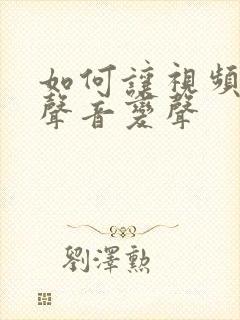 如何讓視頻
聲音變聲
劉澤勲